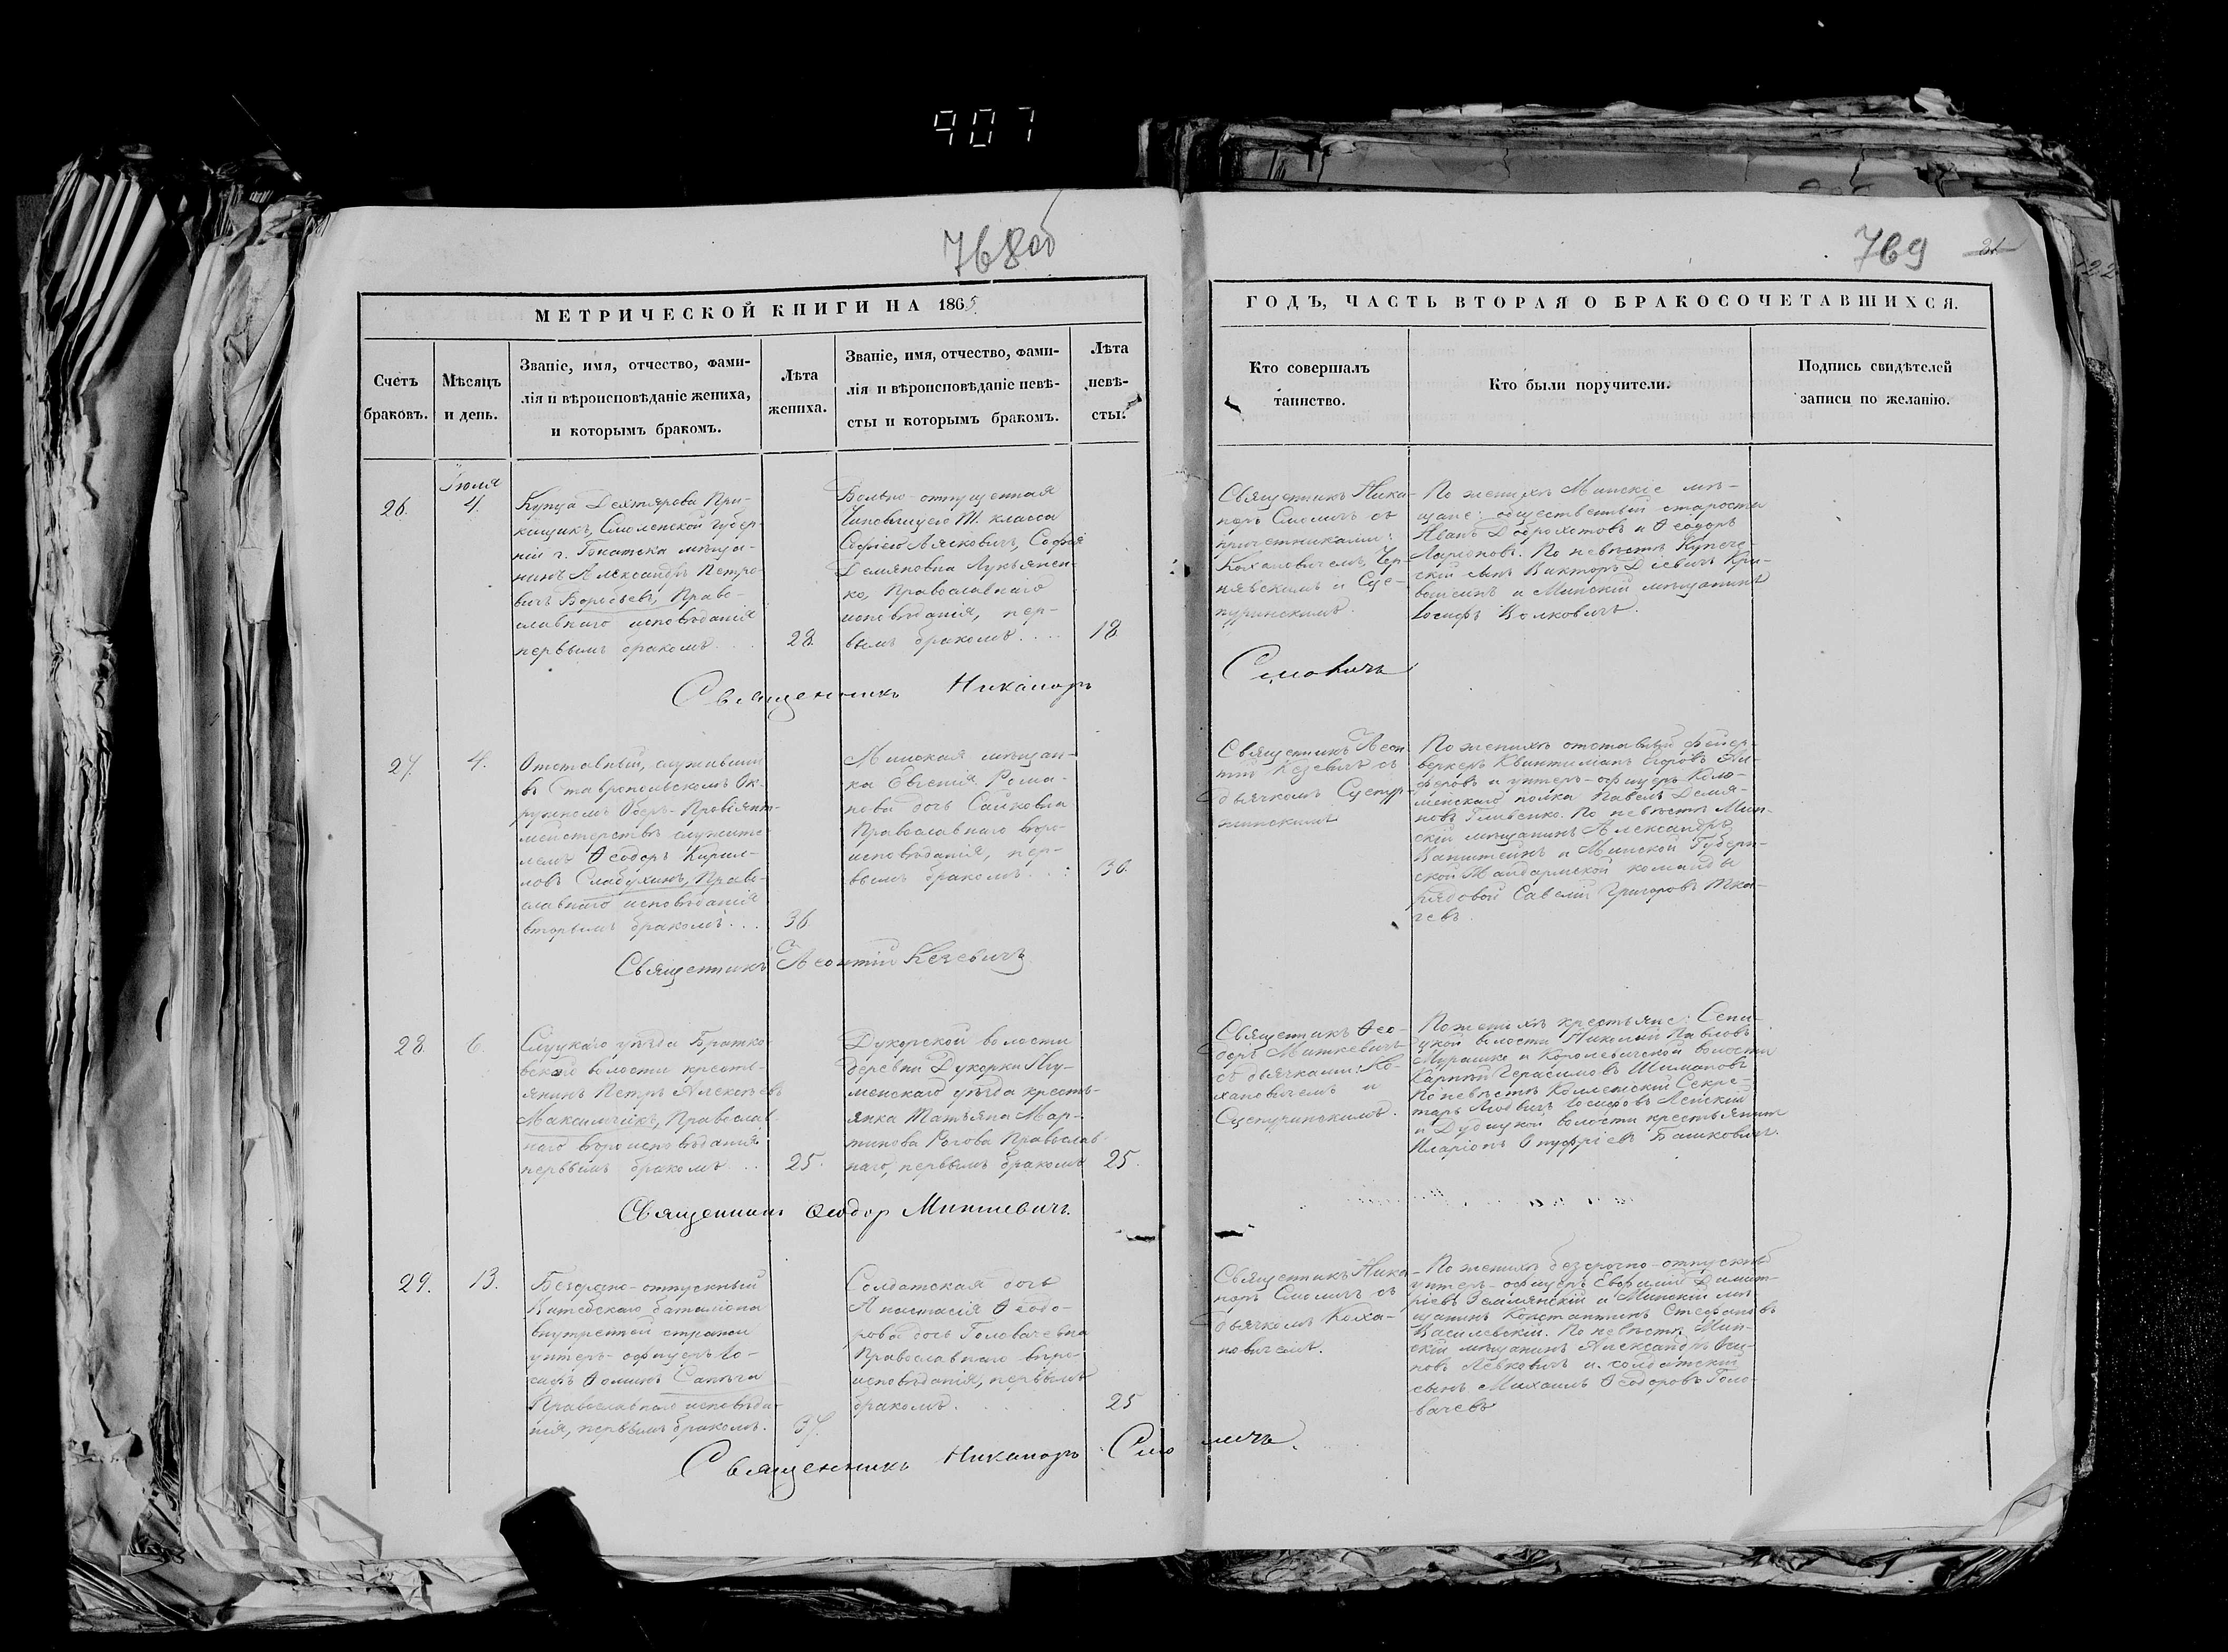 907
768об
769
31
22
МЕТРИЧЕСКОЙ КНИГИ НА 1865
Счетъ
браковъ.
Мѣсяцъ
и день.
Званіе, имя, отчество, фами-
лія и вѣроисповѣданіе жениха,
и которымъ бракомъ.
Лѣта
жениха.
Званіе, имя, отчество, фами-
лія и вѣроисповѣданіе невѣ-
сты и которымъ бракомъ.
Лѣта
невѣ-
сты.
ГОДЪ, ЧАСТЬ ВТОРАЯ О БРАКОСОЧЕТАВШИХСЯ.
Кто совершалъ
таинство.
Кто были поручители.
Подпись свидѣтелей
записи по желанію.
26.
Іюля
4.
Купца Дехтярова При-
кащикъ, Смоленской губер-
ніи г. мѣща-
нинъ Александръ Петро-
вичъ Воробьевъ, Право-
славнаго исповѣданія
первымъ бракомъ . . .
28.
Вольно-отпущенная
Чиновницею класса
Софіею Лясковичъ, Софія
Демяновна Лукьянен-
ко, Православнаго
исповѣданія, пер-
вымъ бракомъ . . . .
18
Священникъ Ника-
норъ Смоличъ съ
причетниками:
Кохановичемъ, Чер-
нявскимъ и Сце-
пуржинскимъ.
По женихѣ Минскіе мѣ-
щане: общественный староста
Иванъ Доброхотовъ и Ѳеодоръ
Ларіоновъ. По невѣстѣ Купече-
скій сынъ Викторъ Кри-
и Минскій мѣщанинъ
Іосифъ Волковичъ.
Священникъ Никаноръ Смоличъ
27.
4.
Отставный, служившій
въ Ставропольскомъ Ок-
ружномъ Оберъ-Провіянт-
мейстерствѣ служите-
лемъ Ѳеодоръ Кирил-
ловъ Слабухинъ, Право-
славнаго исповѣданія
вторымъ бракомъ . . .
36
Минская мѣщан-
ка Евгенія Рома-
нова дочь
Православнаго вѣро-
исповѣданія, пер-
вымъ бракомъ . . :
30.
Священникъ Леон-
тій Кезевичъ съ
дьячкомъ Сцепур-
жинскимъ
По женихѣ отставный фейер-
веркеръ Егоровъ
и унтеръ-офицеръ Коло-
менскаго полка Павелъ Демя-
новъ Глибенко. По невѣстѣ Мин-
скій мѣщанинъ Александръ
и Минской Губерн-
ской Жандармской команды
рядовой Савелій Григоровъ Тка-
чевъ.
Священникъ Леонтій Кезевичъ
28.
6.
Слуцкаго уѣзда Братко-
вской волости крестья-
янинъ Петръ Алексѣевъ
Максимчикъ, Православ-
наго вѣроисповѣданія
первымъ бракомъ . .
25.
Дукорской волости
деревни Дукорки Игу-
менскаго уѣзда кресть-
янка Татьяна Мар-
тинова Рогова Православ-
наго, первымъ бракомъ
25.
Священникъ Ѳео-
доръ Миткевичъ
съ дьячками: Ко-
хановичемъ и
Сцепуржинскимъ.
По женихѣ крестьяне:
волости Николай Павловъ
Мурашко и Королевичской волости
Карпъ Герасимовъ Шимановъ
По невѣстѣ Коллежскій Секре-
тарь Людвигъ Іосифовъ
и Дудицкой волости крестьянинъ
Иларіонъ Онуфріевъ Башковичъ.
Священникъ Ѳеодор Миткевичъ.
29.
13.
Безсрочно-отпускный
Витебскаго баталіона
внутренней стражи
унтеръ-офицеръ Іо-
сифъ Ѳоминъ Сапѣга
Православнаго исповѣда-
нія, первымъ бракомъ.
37.
Солдатская дочь
Анастасія Ѳеодо-
рова дочь Головачевна
Православнаго вѣро-
исповѣданія, первымъ
бракомъ. . . . .
25
Священникъ Ника-
норъ Смоличъ съ
дьячкомъ Коха-
новичемъ.
По женихѣ безсрочно-отпускный
унтеръ-офицеръ Димит-
ріевъ Земянскій и Минскій мѣ-
щанинъ Константинъ Стефановъ
Василевскій. По невѣстѣ Мин-
скій мѣщанинъ Александръ Оси-
повъ Левковичъ и солдатскій
сынъ Михаилъ Ѳеодоровъ Голо-
вачевъ
Священникъ Никаноръ Смоличъ.